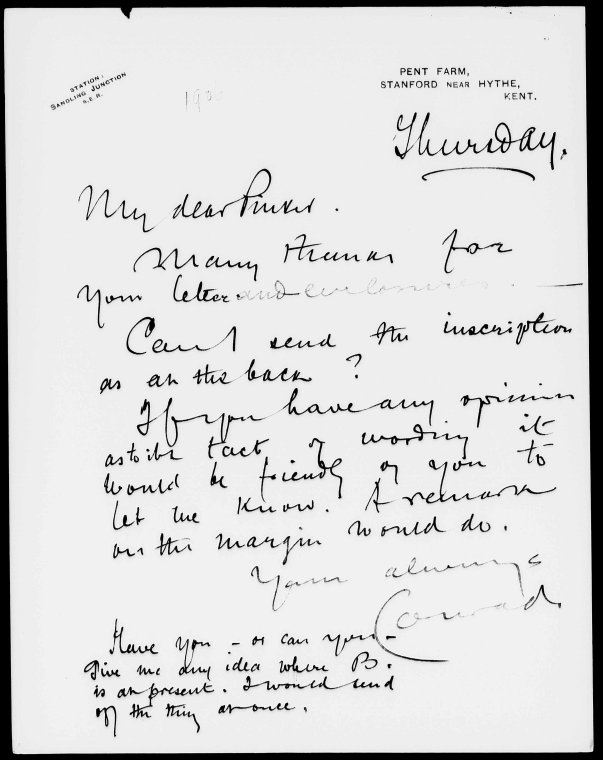 STATION:
SANDLING JUNCTION
S.E.R.
PENT FARM,
STANFORD NEAR HYTHE,
KENT.
Thursday.
My dear Pinker.
Many thanks for
Your letter and enclosures. —
Can I send the inscription
as at the back?
If you have any opinion
as to the tact of wording it
would be friendly of you to
let me know. A remark
on the margin would do.
Yours always
Conrad.
Have you – or can you –
give me any idea where B.
is at present. I would send
off the thing at once.